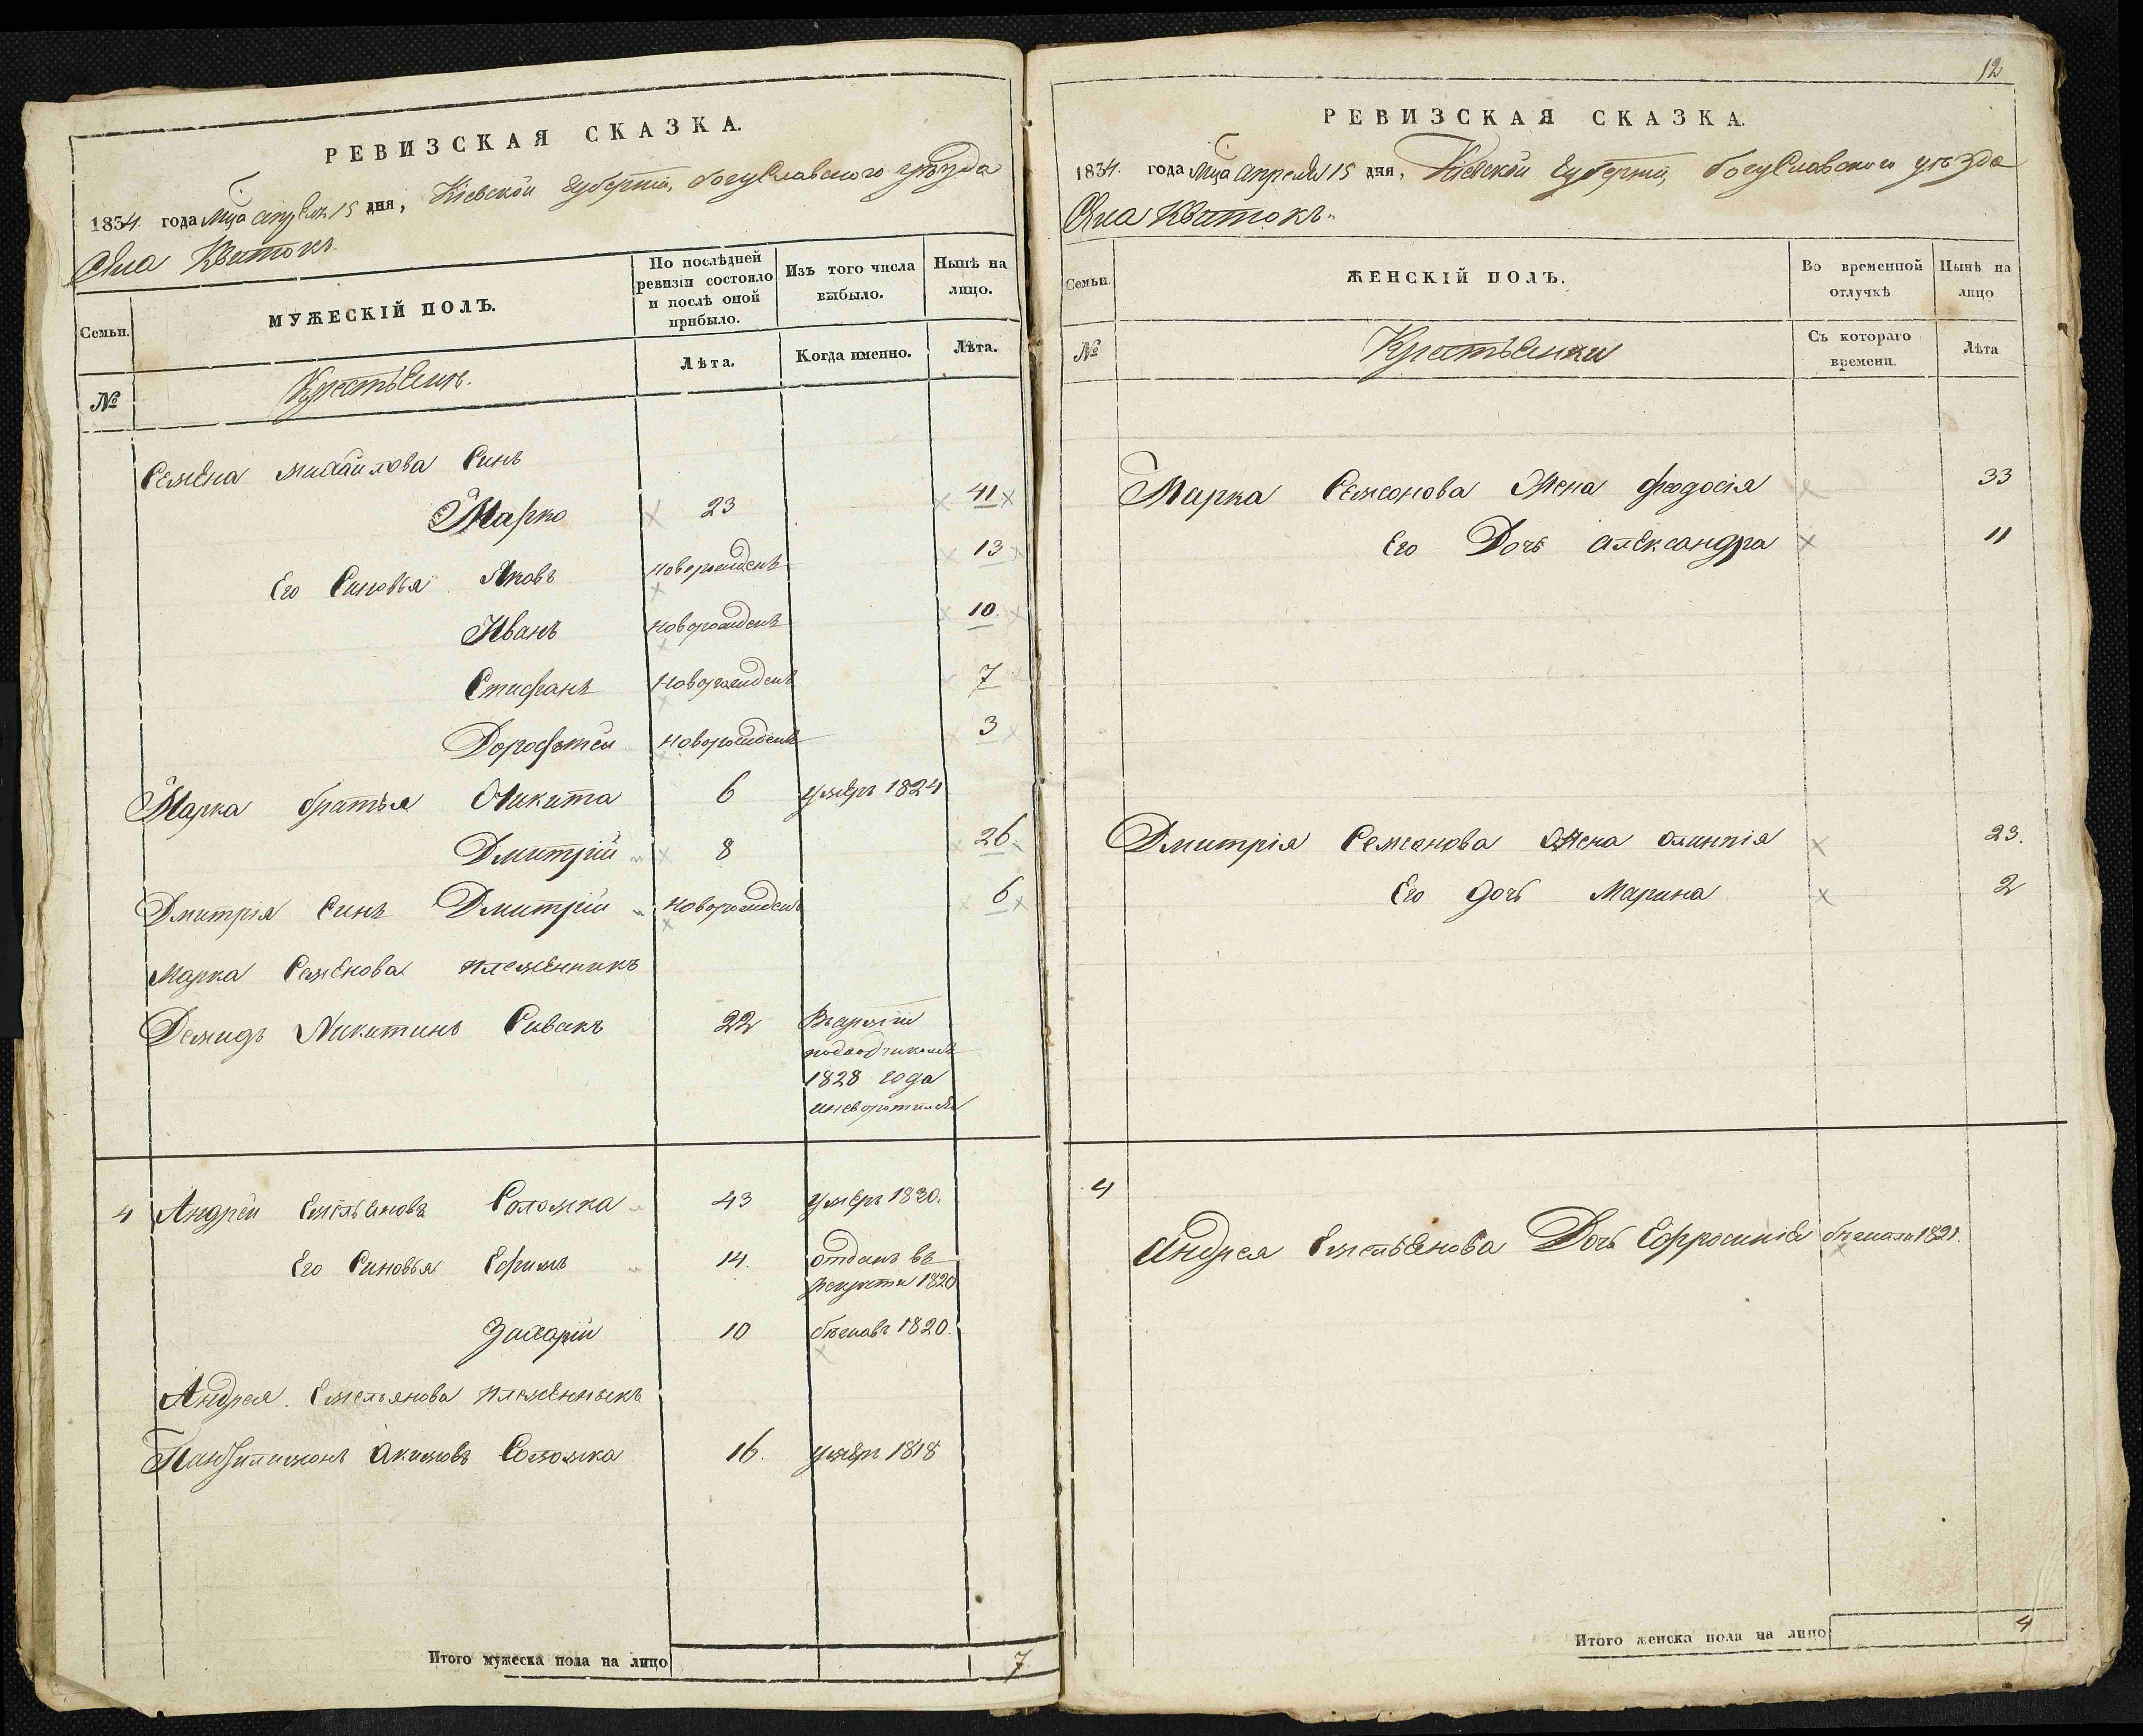 РЕВИЗСКАЯ СКАЗКА.
1834. года Мца апреля 15 дня, Кіевской губерніи, богуславского уезда
Села Квитокъ.
Семьи.
МУЖЕСКІЙ ПОЛЪ.
По послѣдней ревизіи состояло и послѣ оной прибыло.
Изъ того числа выбыло.
Нынѣ на лицо.
№
Крестьянъ.
Лѣта.
Когда именно.
Лѣта.
Семена михайлова Синъ
Марко 23 41
Его Синовья Яковъ новорожденъ 13
Иванъ новорожденъ 10
Стефанъ новорожденъ 7
Дорофтей новорожденъ 3
Марка братья Никита 6 умеръ 1824
Дмитрій 8 26
Дмитрія Синъ Дмитрій новорожденъ 6
Марка Семенова племенникъ
Демидъ Никитинъ Сивакъ 22 Въ арміи
подводчикомъ
1828 года
4 Андрей Емельяновъ Соломка 43 умеръ 1830.
Его Синовья Ефимъ 14. отданъ въ
рекруты 1820
Захарій 10 бежавъ 1820.
Андрея Емельянова племенныкъ
Пантилимонъ Акимовъ Соломка 16. умеръ 1818
Итого мужеска пола на лицо 7
12
РЕВИЗСКАЯ СКАЗКА.
1834. года Мца апреля 15 дня, Кіевской губерніи, богуславского уезда
Села Квитокъ.
Семьи.
ЖЕНСКІЙ ПОЛЪ.
Во временной отлучкѣ
Нынѣ на лицо
№
Крестьянки
Съ котораго времени.
Лѣта
Марка Семенова Жена феодосія 33
Его Дочь александра 11
Дмитрія Семенова Жена олимпія 23.
Его дочь Марина 2
4
Андрея Емельянова Дочь Ефросинія бежала 1821.
Итого женска пола на лицо 4